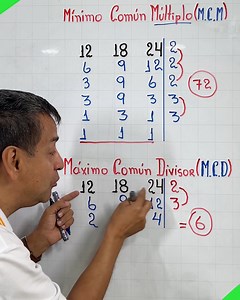 Mínimo Común Múltiplo (M.C.M)
12 18 24 2
6 9 12 2
3 9 6 2
3 9 3 3 72
1 3 1 3
1 1 1
Máximo Común Divisor (M.C.D)
12 18 24 2
6 9 12 3
2 4 = 6